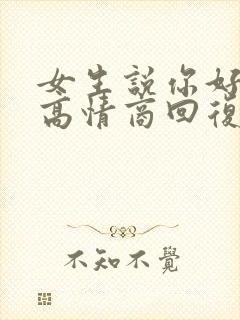 女生説你好
高情商回復
不知不覺